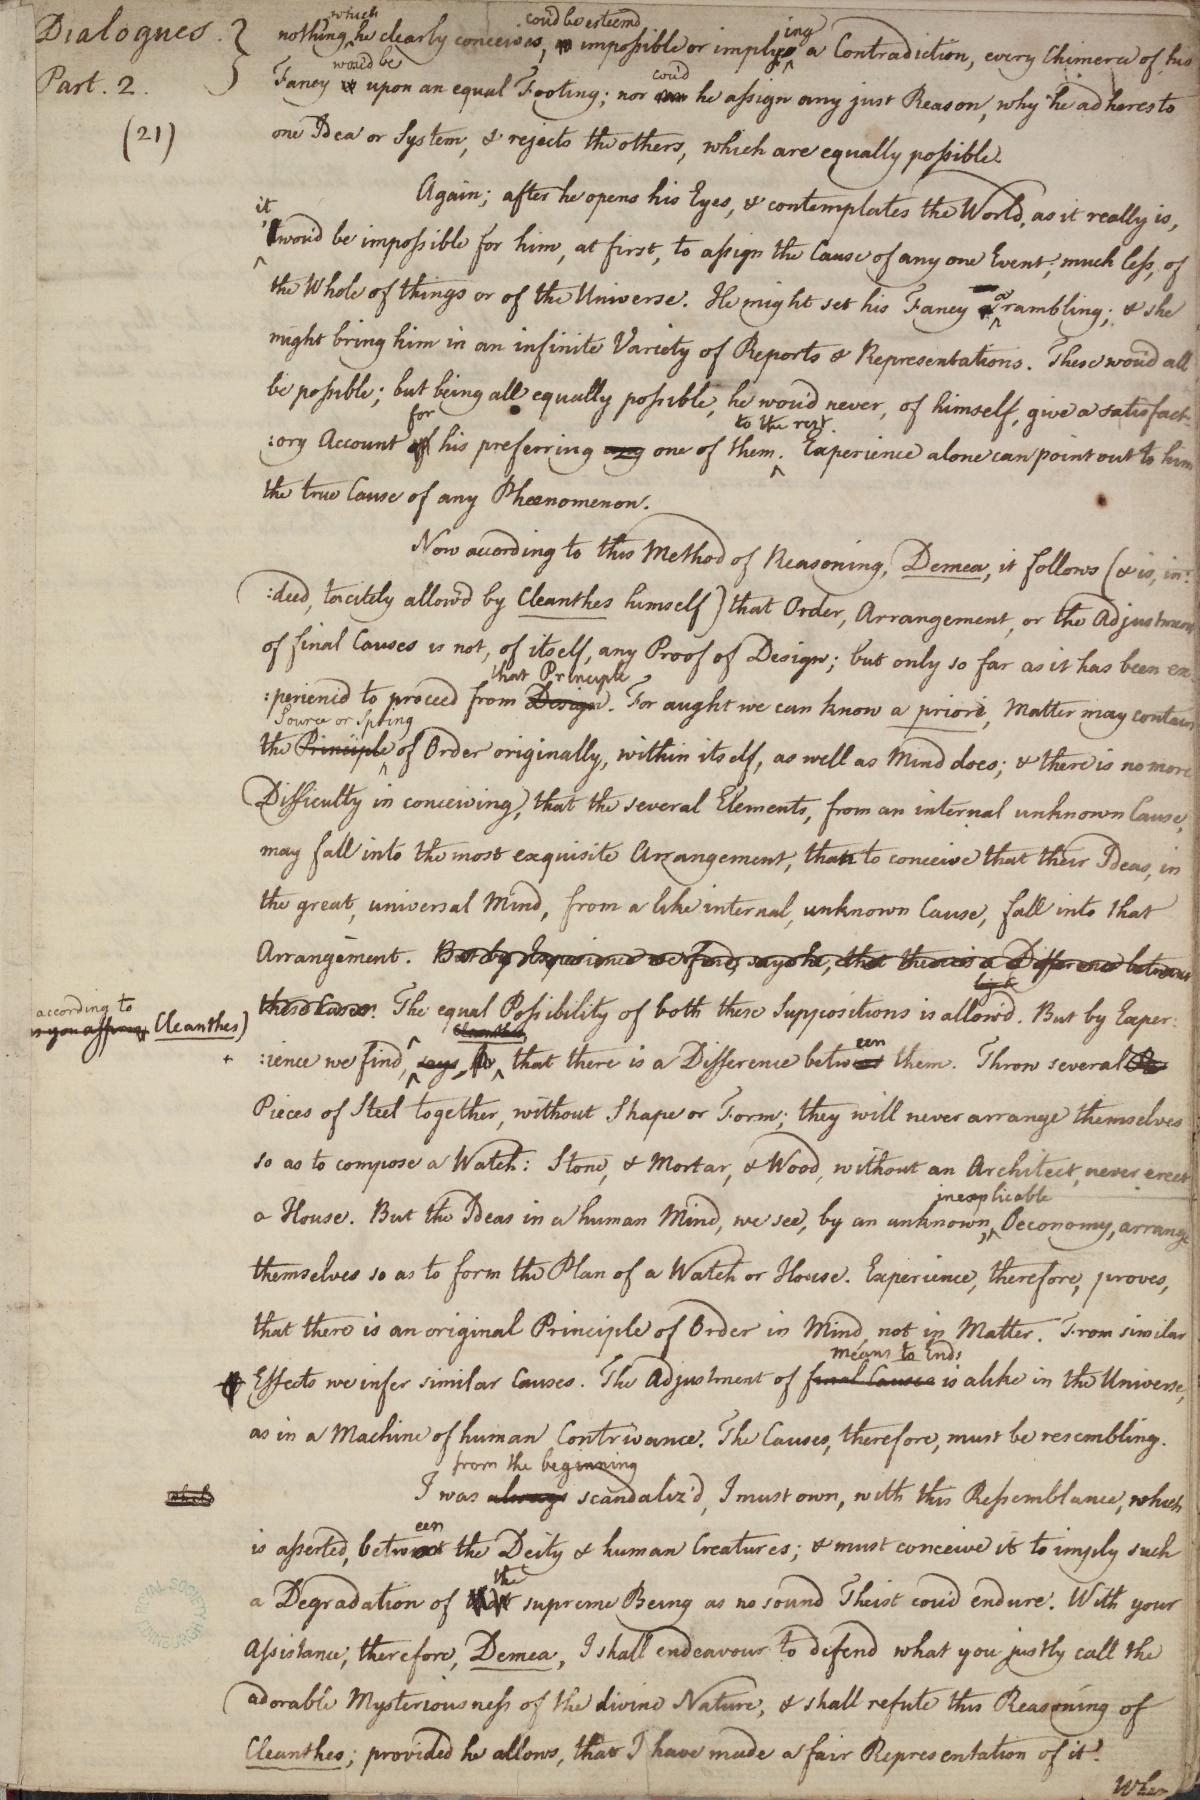 Dialogues.
Part. 2.
(21)
which coud be esteemd ing
nothing he clearly conceives, impossible or implying a Contradiction, every Chimera of his
woud be coud
Fancy upon an equal Footing; nor he assign any just Reason, why he adheres to
one Idea or System, & rejects the others, which are equally possible.
Again; after he opens his Eyes, & contemplates the World, as it really is,
it
woud be impossible for him, at first, to assign the Cause of any one Event; much less, of
the Whole of things or of the Universe. He might set his Fancy a rambling; & she
might bring him in an infinite Variety of Reports & Representations. These woud all
be possible; but being all equally possible, he woud never, of himself, give a satisfact-
for to the rest.
:ory Account of his preferring any one of them. Experience alone can point out to him
the true Cause of any Phœnomenon.
Now according to this Method of Reasoning, Demea, it follows (& is, in:
:deed, tacitely allowd by Cleanthes himself) that Order, Arrangement, or the Adjustment
of final Causes is not, of itself, any Proof of Design; but only so far as it has been ex:
that Principle
:periencd to proceed from Design. For aught we can know a priori, Matter may contain
Source or Spring
the Principle of Order originally, within itself, as well as Mind does; & there is no more
Difficulty in conceiving, that the several Elements, from an internal unknown Cause,
may fall into the most exquisite Arrangement, than to conceive that their Ideas, in
the great, universal Mind, from a like internal, unknown Cause, fall into that
Arrangement. But by Experience we find, says he, that there is a Difference between
these Cases. The equal Possibility of both these Suppositions is allowd. But by Exper:
according to
Cleanthes)
Cleanthes een
:ience we find, says he, that there is a Difference betwixt them. Throw several
Pieces of Steel together, without Shape or Form; they will never arrange themselves
so as to compose a Watch: Stone, & Mortar, & Wood, without an Architect, never erect
inexplicable
a House. But the Ideas in a human Mind, we see, by an unknown, Oeconomy, arrange
themselves so as to form the Plan of a Watch or House. Experience, therefore, proves,
that there is an original Principle of Order in Mind, not in Matter. From similar
means to Ends
Effects we infer similar Causes. The Adjustment of final Causes is alike in the Universe,
as in a Machine of human Contrivance. The Causes, therefore, must be resembling.
from the beginning
I was always scandaliz'd, I must own, with this Resemblance, which
een
is asserted, betwixt the Deity & human Creatures; & must conceive it to imply such
the
a Degradation of that supreme Being as no sound Theist coud endure. With your
Assistance, therefore, Demea, I shall endeavour to defend what you justly call the
adorable Mysteriousness of the divine Nature, & shall refute this Reasoning of
Cleanthes; provided he allows, that I have made a fair Representation of it.
When
ROYAL SOCIETY
EDINBURGH